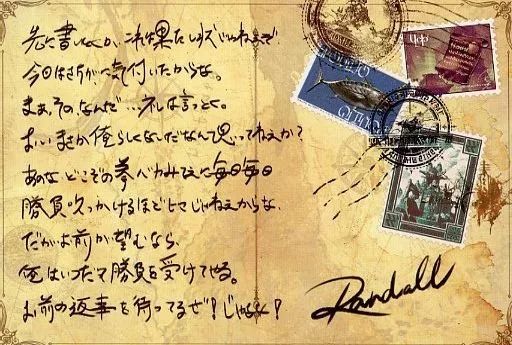 先に書いとくが、これは果たし状じゃねぇぞ
今日はちがうに気付いたからな。
まぁ、その、なんだ…礼は言っとく。
おい、まさか俺らしくないだなんて思ってねぇか？
あのな、どこぞの拳バカみてぇに毎日毎日
勝負吹っかけるほどヒマじゃねぇからな、
だがお前が望むなら、
俺はいつだって勝負を受けてやる。
お前の返事を待ってるぜ！じゃあな！
Randall